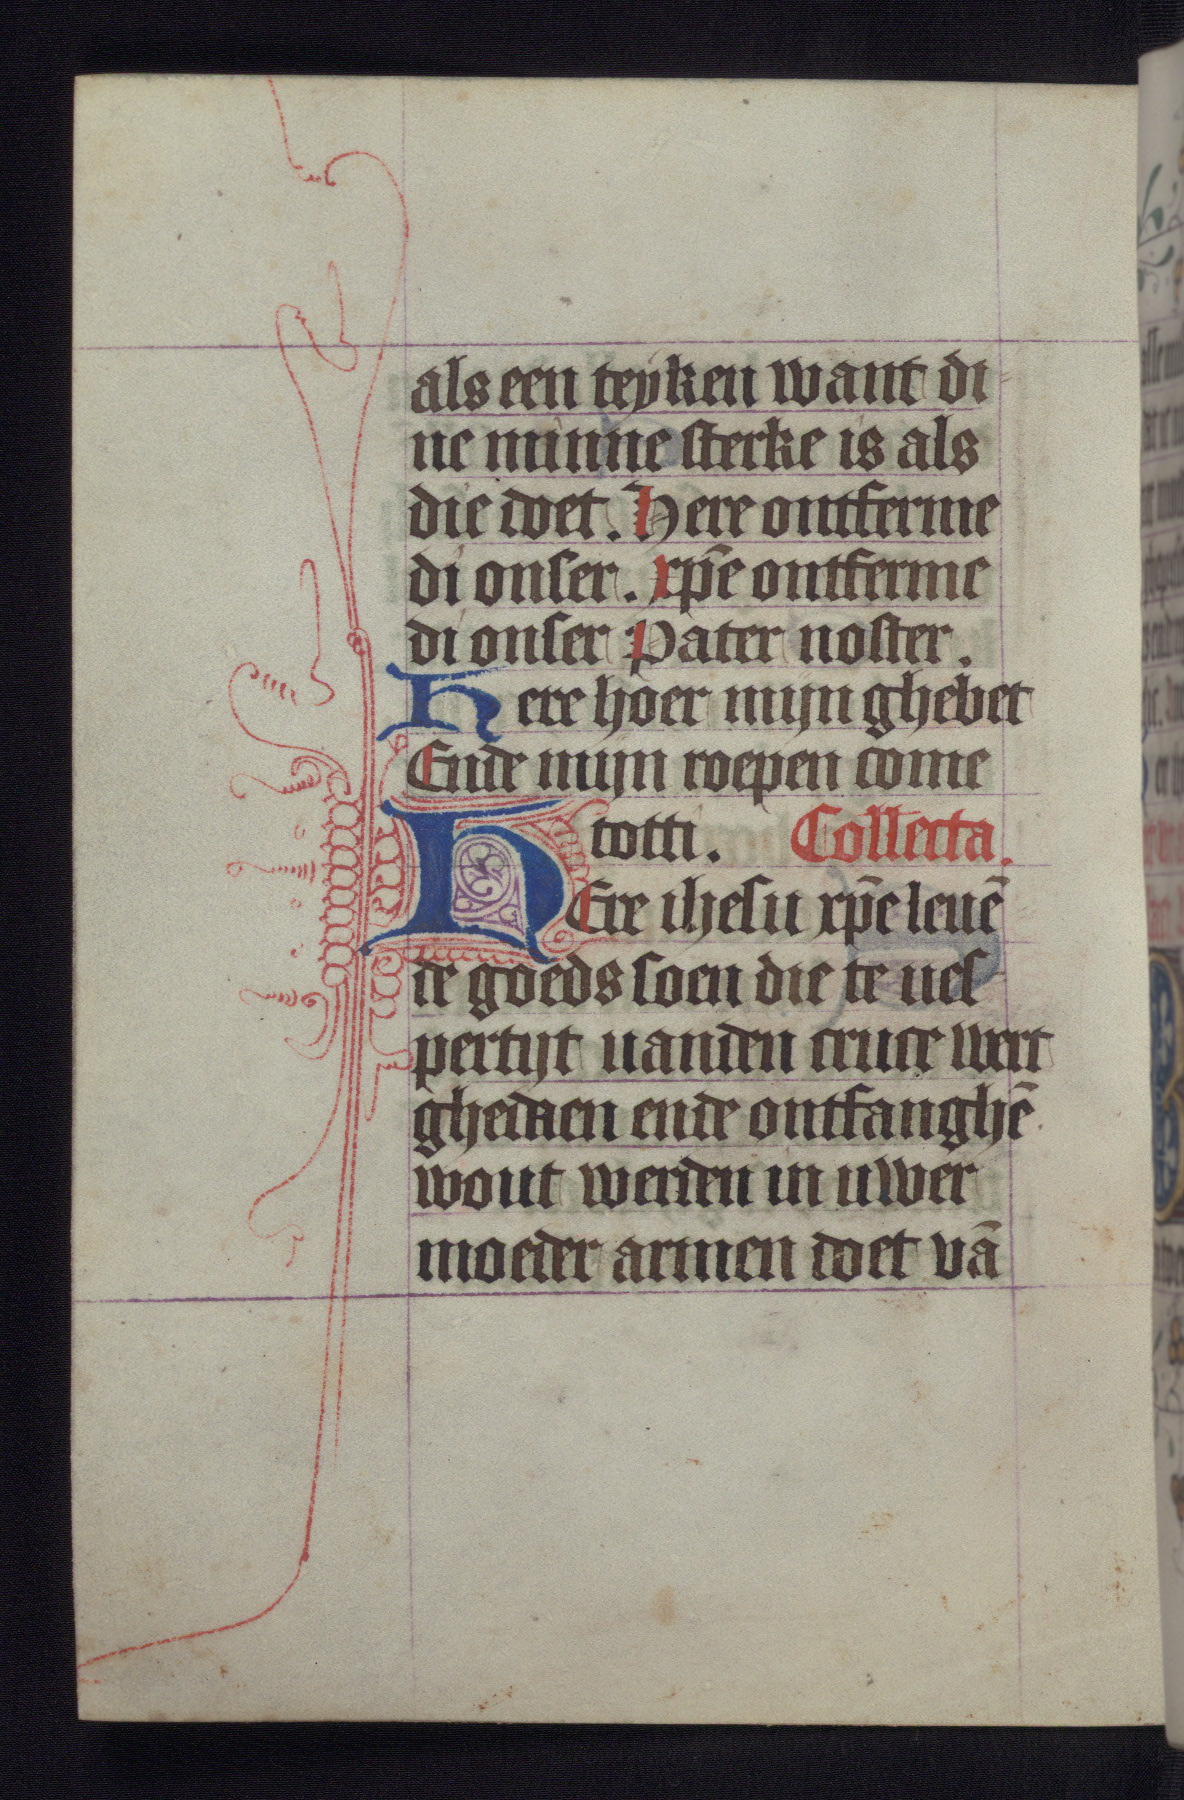 als een teyken want di
ne minne sterke is als
die doet. Here ontferme
di onser. xp̄e ontferme
di onser Pater noster.
Here hoer mijn ghebet
Ende mijn roepen come
totti. Collecta.
HEre ihesu xp̄e leuē
de goeds soen die te ues
pertijt uanden cruce wert
ghedaen ende ontfanghē
wout werden in uwer
moeder armen doet vā